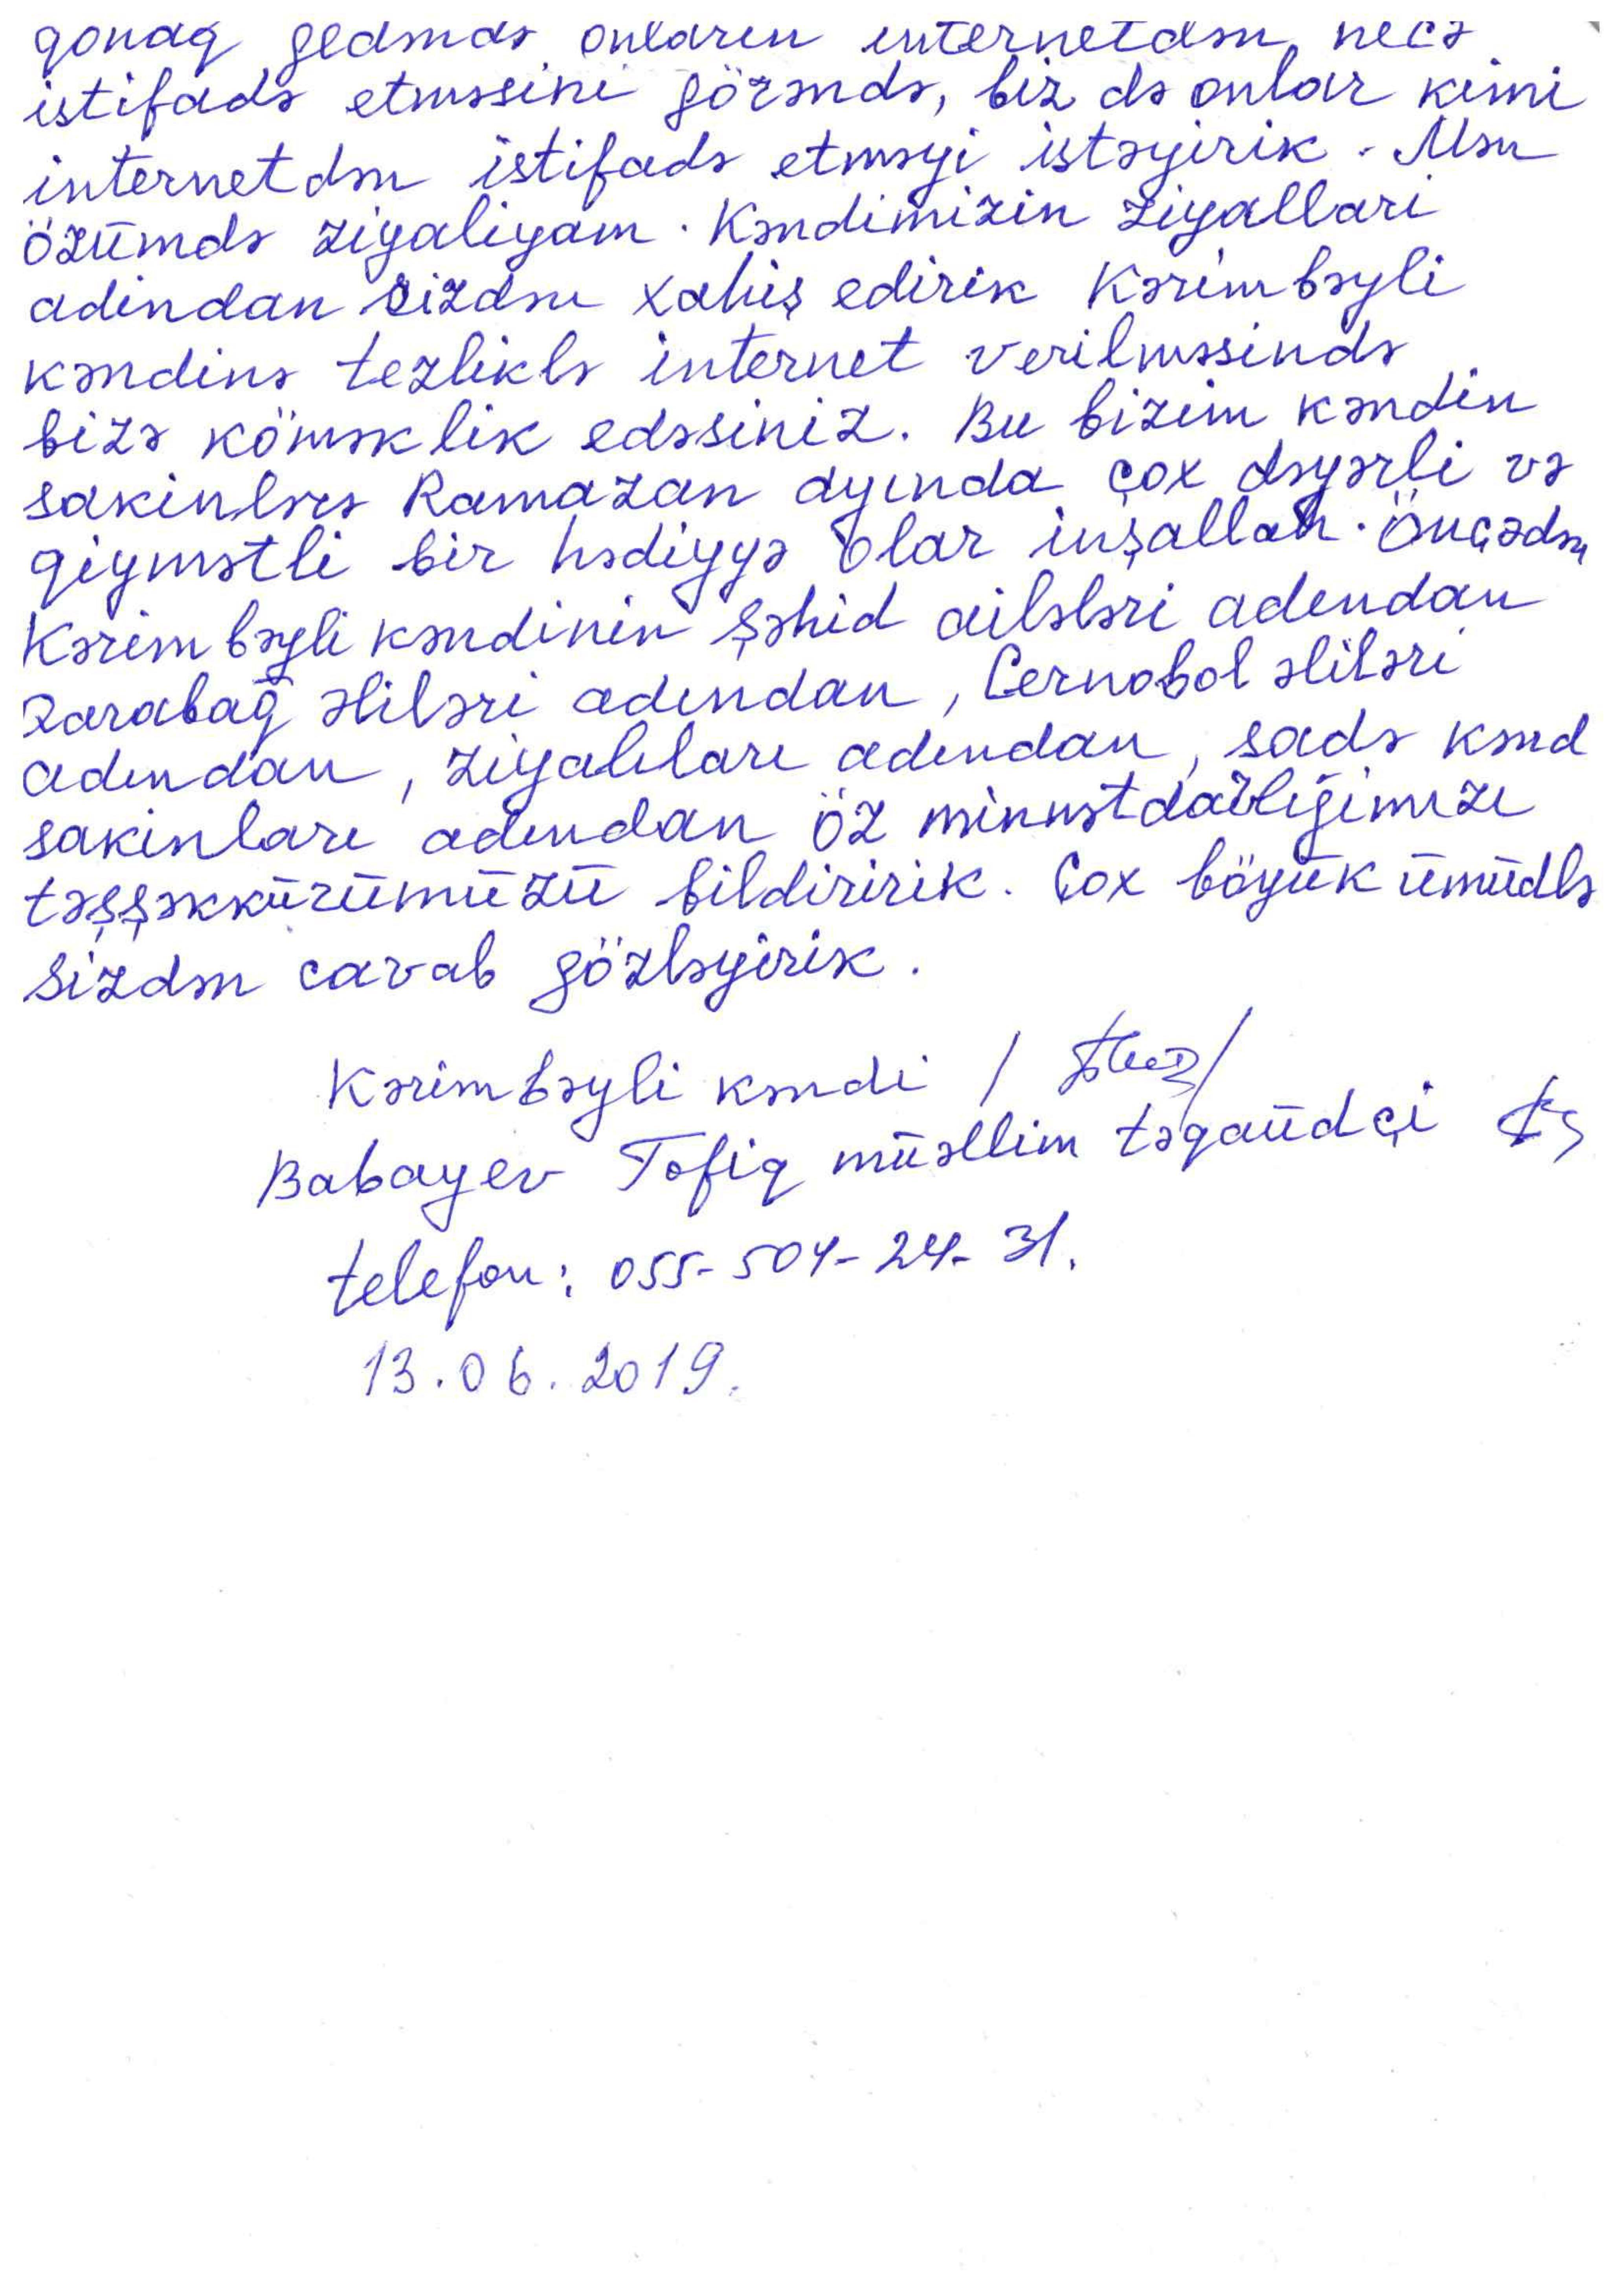 qonaq gedəndə onların internetdən necə
istifadə etməsini görəndə, biz də onlar kimi
internetdən istifadə etməyi istəyirik. Mən
özümdə ziyaliyam. Kəndimizin ziyallari
adindan sizdən xahiş edirik Kərimbəyli
kəndinə tezliklə internet verilməsində
bizə köməklik edəsiniz. Bu bizim kəndin
sakinlərə Ramazan ayında çox dəyərli və
qiymətli bir hədiyyə olar inşallah. Önçədən
Kərimbəyli kəndinin şəhid ailələri adından
Qarabağ əliləri adından, Çernobol əliləri
adından, ziyalıları adından, sadə kənd
sakinları adından öz minnətdarlığımızı
təşşəkkürümüzü bildiririk. Çox böyük ümüdlə
Sizdən cavab gözləyirik.
Kərimbəyli kəndi / /
Babayev Tofiq müəllim təqaüdçi
telefon: 055-504-24-31.
13.06.2019.